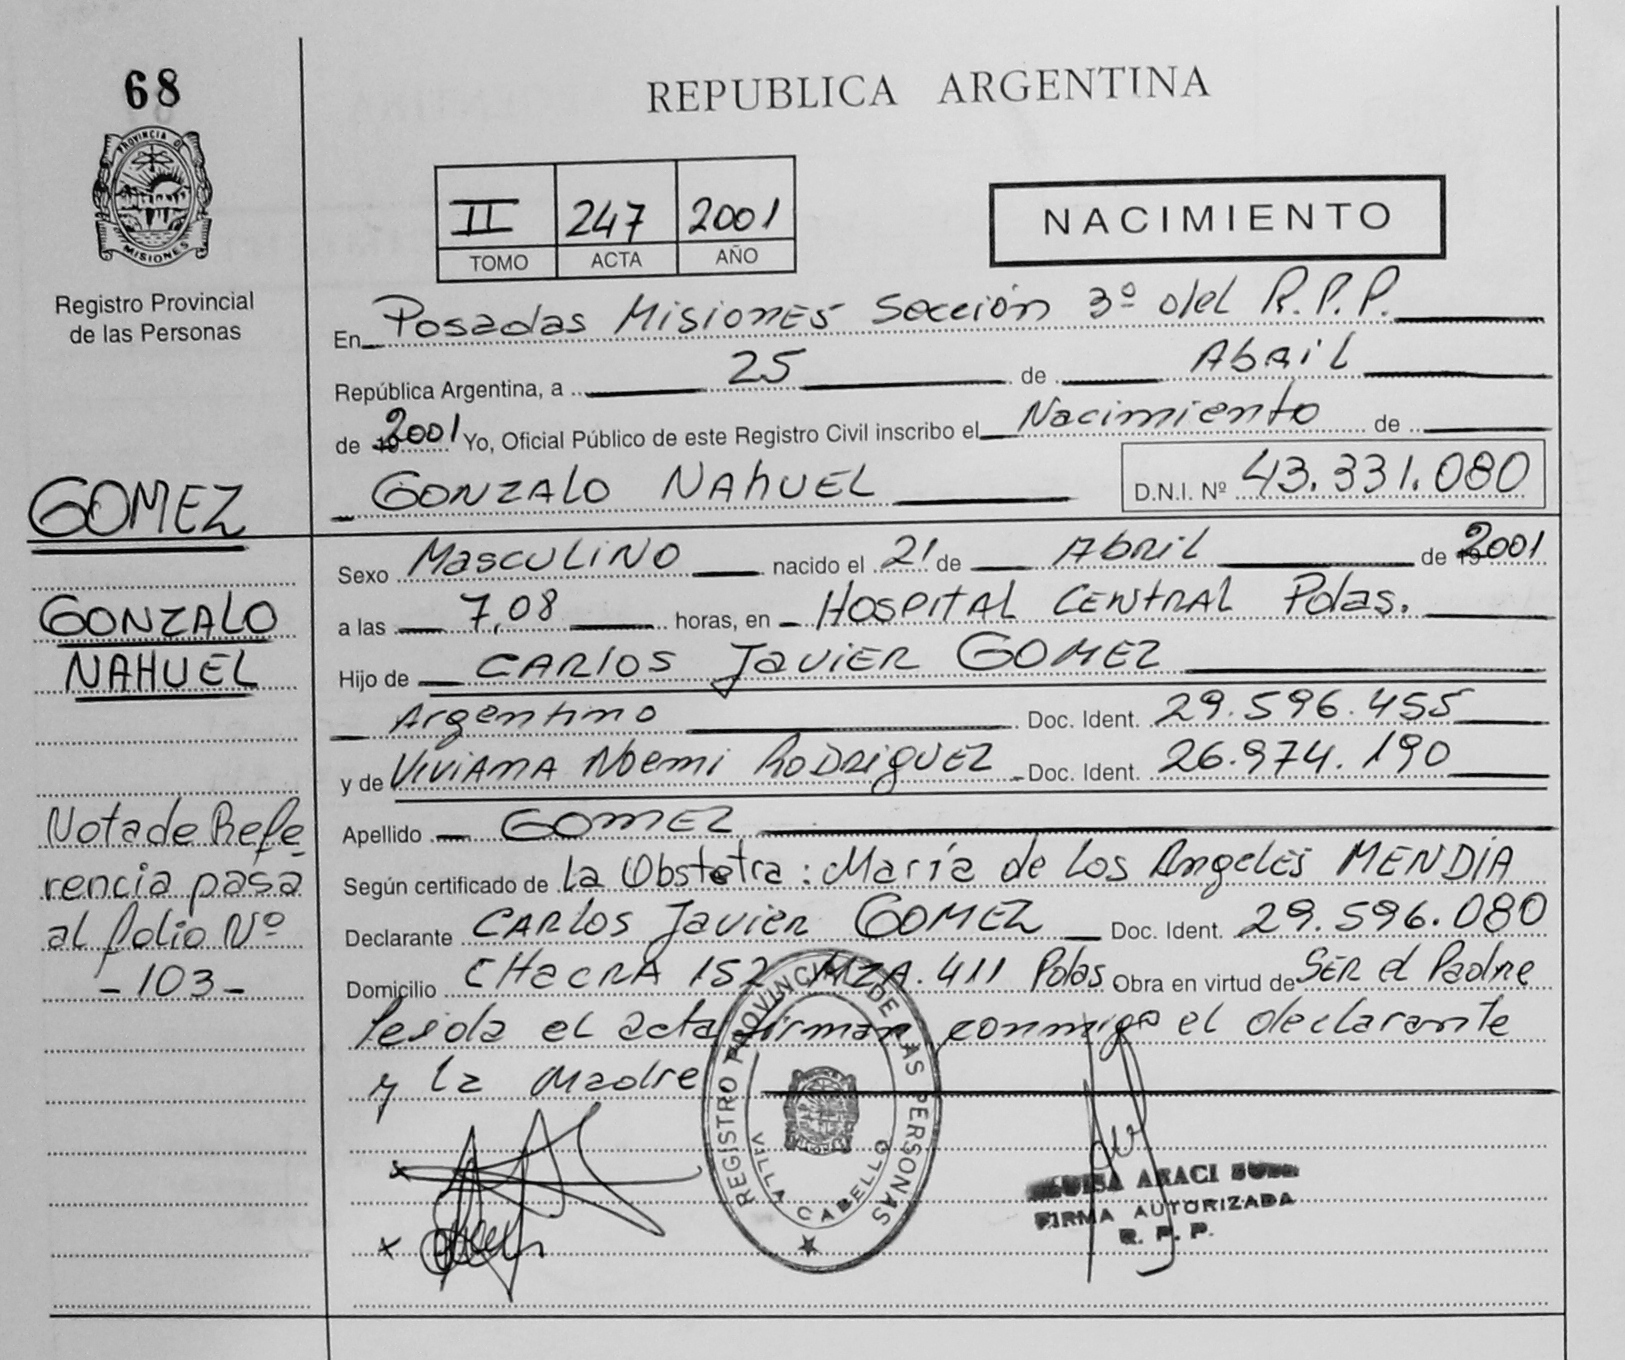 68
REPUBLICA ARGENTINA
PROVINCIA DE
MISIONES
Registro Provincial
de las Personas
II 247 2001
TOMO ACTA AÑO
NACIMIENTO
En Posadas Misiones Sección 3º del R.P.P.
República Argentina, a 25 de Abril
de 2001 Yo, Oficial Público de este Registro Civil inscribo el Nacimiento de
GONZALO NAHUEL D.N.I. Nº 43.331.080
GOMEZ
GONZALO
NAHUEL
Sexo MASCULINO nacido el 21 de Abril de 2001
a las 7,08 horas, en HOSPITAL CENTRAL Pdas.
Hijo de CARLOS JAVIER GOMEZ
Argentino Doc. Ident. 29.596.455
y de VIVIANA Noemi RODRIGUEZ Doc. Ident. 26.974.190
Apellido GOMEZ
Según certificado de La Obstetra: María de Los Angeles MENDIA
Declarante CARLOS Javier GOMEZ Doc. Ident. 29.596.080
Domicilio CHACRA 152 MZA. 411 Pdas Obra en virtud de SER el Padre
leida el acta firman conmigo el declarante
y la Madre
Nota de Refe
rencia pasa
al folio Nº
- 103 -
REGISTRO PROVINCIAL DE LAS PERSONAS
VILLA CABELLO
ARACI
FIRMA AUTORIZADA
R. P. P.